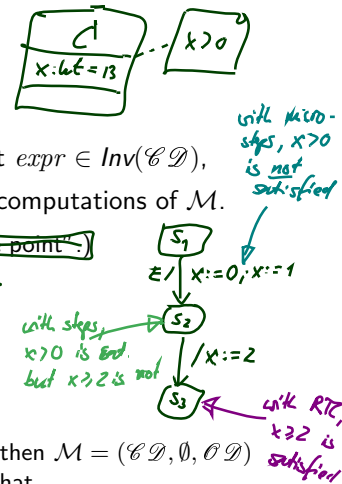 C
x:Int = 13
x>0
t expr ∈ Inv(𝒞𝒟),
computations of ℳ.
with micro-
steps, x>0
is not
satisfied
point".)
S1
E/ x:=0; x:=1
S2
with steps,
x>0 is sat.
but x≥2 is not
/x:=2
S3
with RTC,
x≥2 is
satisfied
then ℳ = (𝒞𝒟, ∅, 𝒪𝒟)